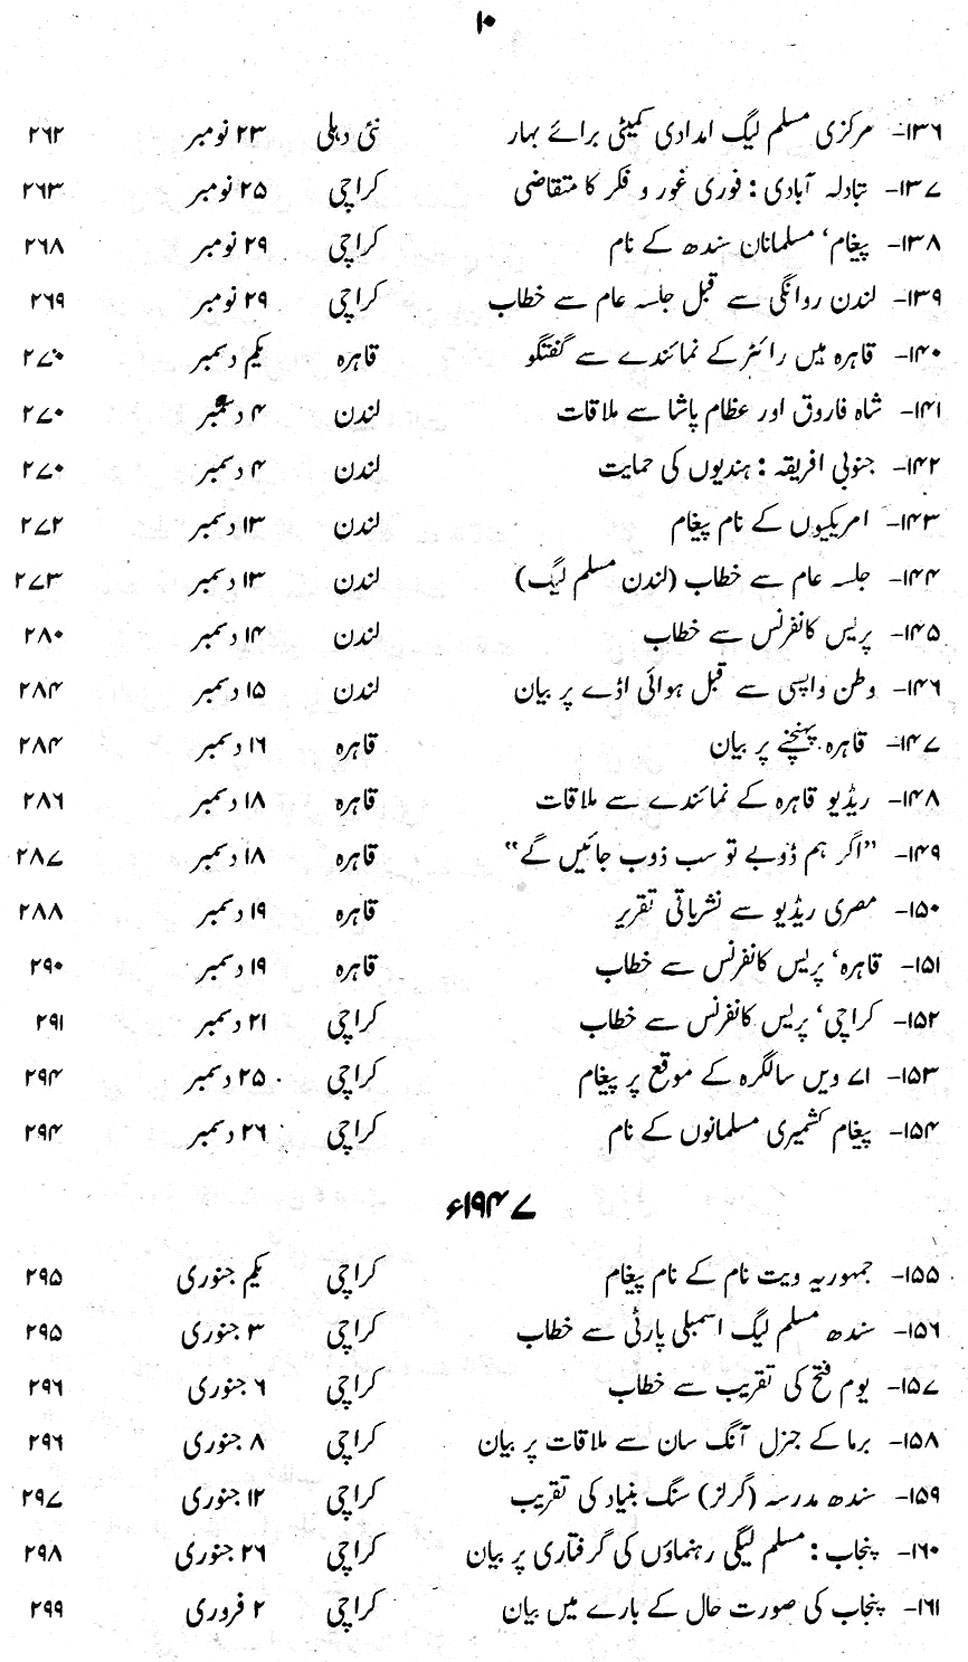 ۱۰
۱۳۶- مرکزی مسلم لیگ امدادی کمیٹی برائے بہار نئی دہلی ۲۳ نومبر ۲۶۲
۱۳۷- تبادلہ آبادی : فوری غور و فکر کا متقاضی کراچی ۲۵ نومبر ۲۶۳
۱۳۸- پیغام‘ مسلمانان سندھ کے نام کراچی ۲۹ نومبر ۲۶۸
۱۳۹- لندن روانگی سے قبل جلسہ عام سے خطاب کراچی ۲۹ نومبر ۲۶۹
۱۴۰- قاہرہ میں رائٹر کے نمائندے سے گفتگو قاہرہ یکم دسمبر ۲۷۰
۱۴۱- شاہ فاروق اور عظام پاشا سے ملاقات لندن ۴ دسمبر ۲۷۰
۱۴۲- جنوبی افریقہ : ہندیوں کی حمایت لندن ۴ دسمبر ۲۷۰
۱۴۳- امریکیوں کے نام پیغام لندن ۱۳ دسمبر ۲۷۲
۱۴۴- جلسہ عام سے خطاب (لندن مسلم لیگ) لندن ۱۳ دسمبر ۲۷۳
۱۴۵- پریس کانفرنس سے خطاب لندن ۱۴ دسمبر ۲۸۰
۱۴۶- وطن واپسی سے قبل ہوائی اڈے پر بیان لندن ۱۵ دسمبر ۲۸۴
۱۴۷- قاہرہ پہنچنے پر بیان قاہرہ ۱۶ دسمبر ۲۸۴
۱۴۸- ریڈیو قاہرہ کے نمائندے سے ملاقات قاہرہ ۱۸ دسمبر ۲۸۶
۱۴۹- ”اگر ہم ڈوبے تو سب ڈوب جائیں گے“ قاہرہ ۱۸ دسمبر ۲۸۷
۱۵۰- مصری ریڈیو سے نشریاتی تقریر قاہرہ ۱۹ دسمبر ۲۸۸
۱۵۱- قاہرہ‘ پریس کانفرنس سے خطاب قاہرہ ۱۹ دسمبر ۲۹۰
۱۵۲- کراچی‘ پریس کانفرنس سے خطاب کراچی ۲۱ دسمبر ۲۹۱
۱۵۳- ۷۱ ویں سالگرہ کے موقع پر پیغام کراچی ۲۵ دسمبر ۲۹۴
۱۵۴- پیغام کشمیری مسلمانوں کے نام کراچی ۲۶ دسمبر ۲۹۴
۱۹۴۷ء
۱۵۵- جمہوریہ ویت نام کے نام پیغام کراچی یکم جنوری ۲۹۵
۱۵۶- سندھ مسلم لیگ اسمبلی پارٹی سے خطاب کراچی ۳ جنوری ۲۹۵
۱۵۷- یوم فتح کی تقریب سے خطاب کراچی ۶ جنوری ۲۹۶
۱۵۸- برما کے جنرل آنگ سان سے ملاقات پر بیان کراچی ۸ جنوری ۲۹۶
۱۵۹- سندھ مدرسہ (گرلز) سنگ بنیاد کی تقریب کراچی ۱۲ جنوری ۲۹۷
۱۶۰- پنجاب : مسلم لیگی رہنماؤں کی گرفتاری پر بیان کراچی ۲۶ جنوری ۲۹۸
۱۶۱- پنجاب کی صورت حال کے بارے میں بیان کراچی ۲ فروری ۲۹۹